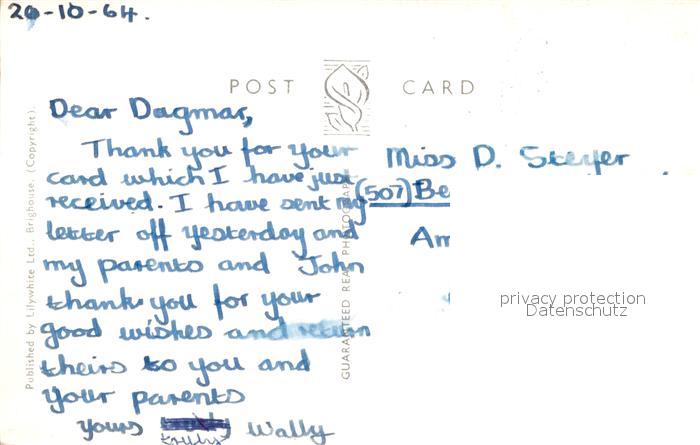 20-10-64.
POST CARD
Dear Dagmar,
Thank you for your
card which I have just
received. I have sent my
letter off yesterday and
my parents and John
thank you for your
good wishes and return
theirs to you and
your parents
yours truly Wally
Miss D. Steyer
(507) Be
Am
privacy protection
Datenschutz
Published by Lilywhite Ltd., Brighouse. (Copyright).
GUARANTEED REAL PHOTOGRAPH